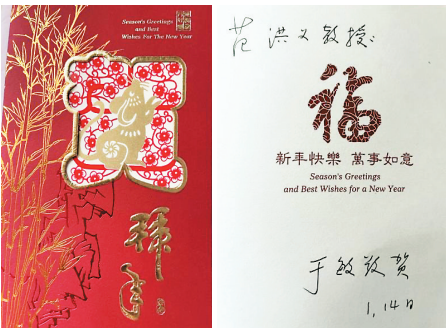 Season's Greetings
and Best
Wishes For The New Year
拜年
范洪义教授：
福
新年快樂 萬事如意
Season's Greetings
and Best Wishes for a New Year
于敏敬贺
1,14日